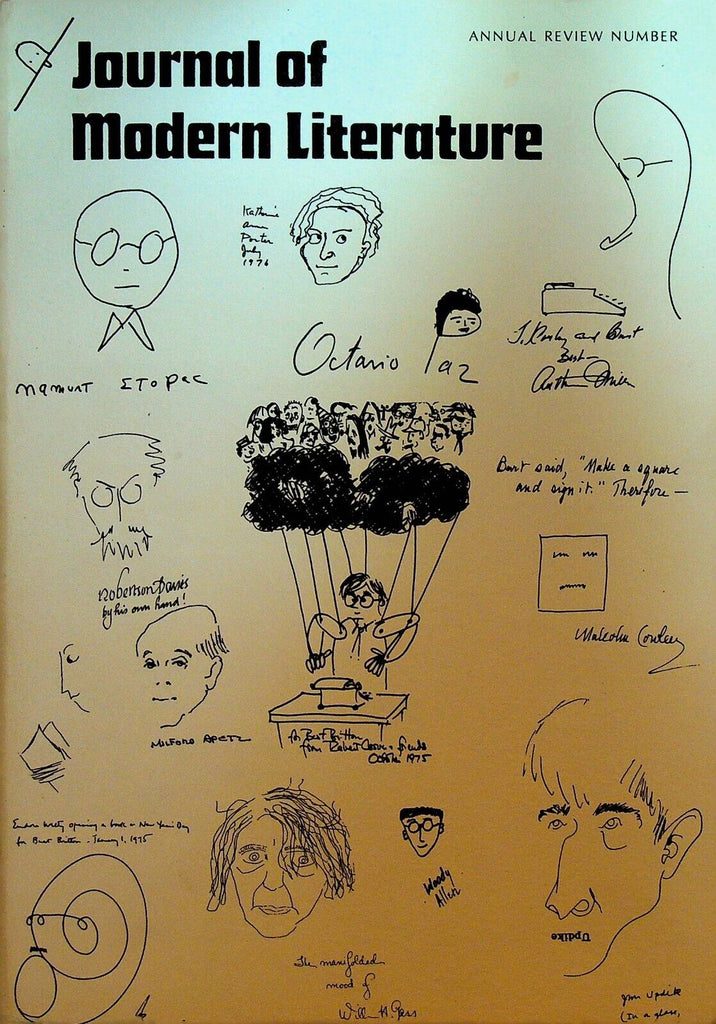 ANNUAL REVIEW NUMBER
Journal of
Modern Literature
Katherine
Anne
Porter
July
1976
Octavio Paz
Best—
Arthur Miller
Burt said, "Make a square
and sign it." Therefore —
Malcolm Cowley
Robertson Davies
by his own hand!
for Burt Britton
from Robert Coover & friends
October 1975
Eudora Welty opening a book on New Year's Day
for Burt Britton - January 1, 1975
Woody
Allen
Updike
The manifolded
mood of
William H. Gass
John Updike
(In a glass,